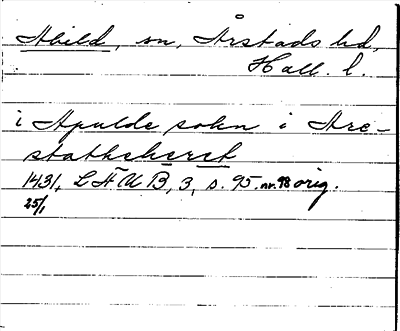 Abild, sn, Årstads hd,
Hall. l.
i Apulde sokn i Are-
statheheret
1431, LHUB, 3, s. 95. nr. 98 orig.
25/1